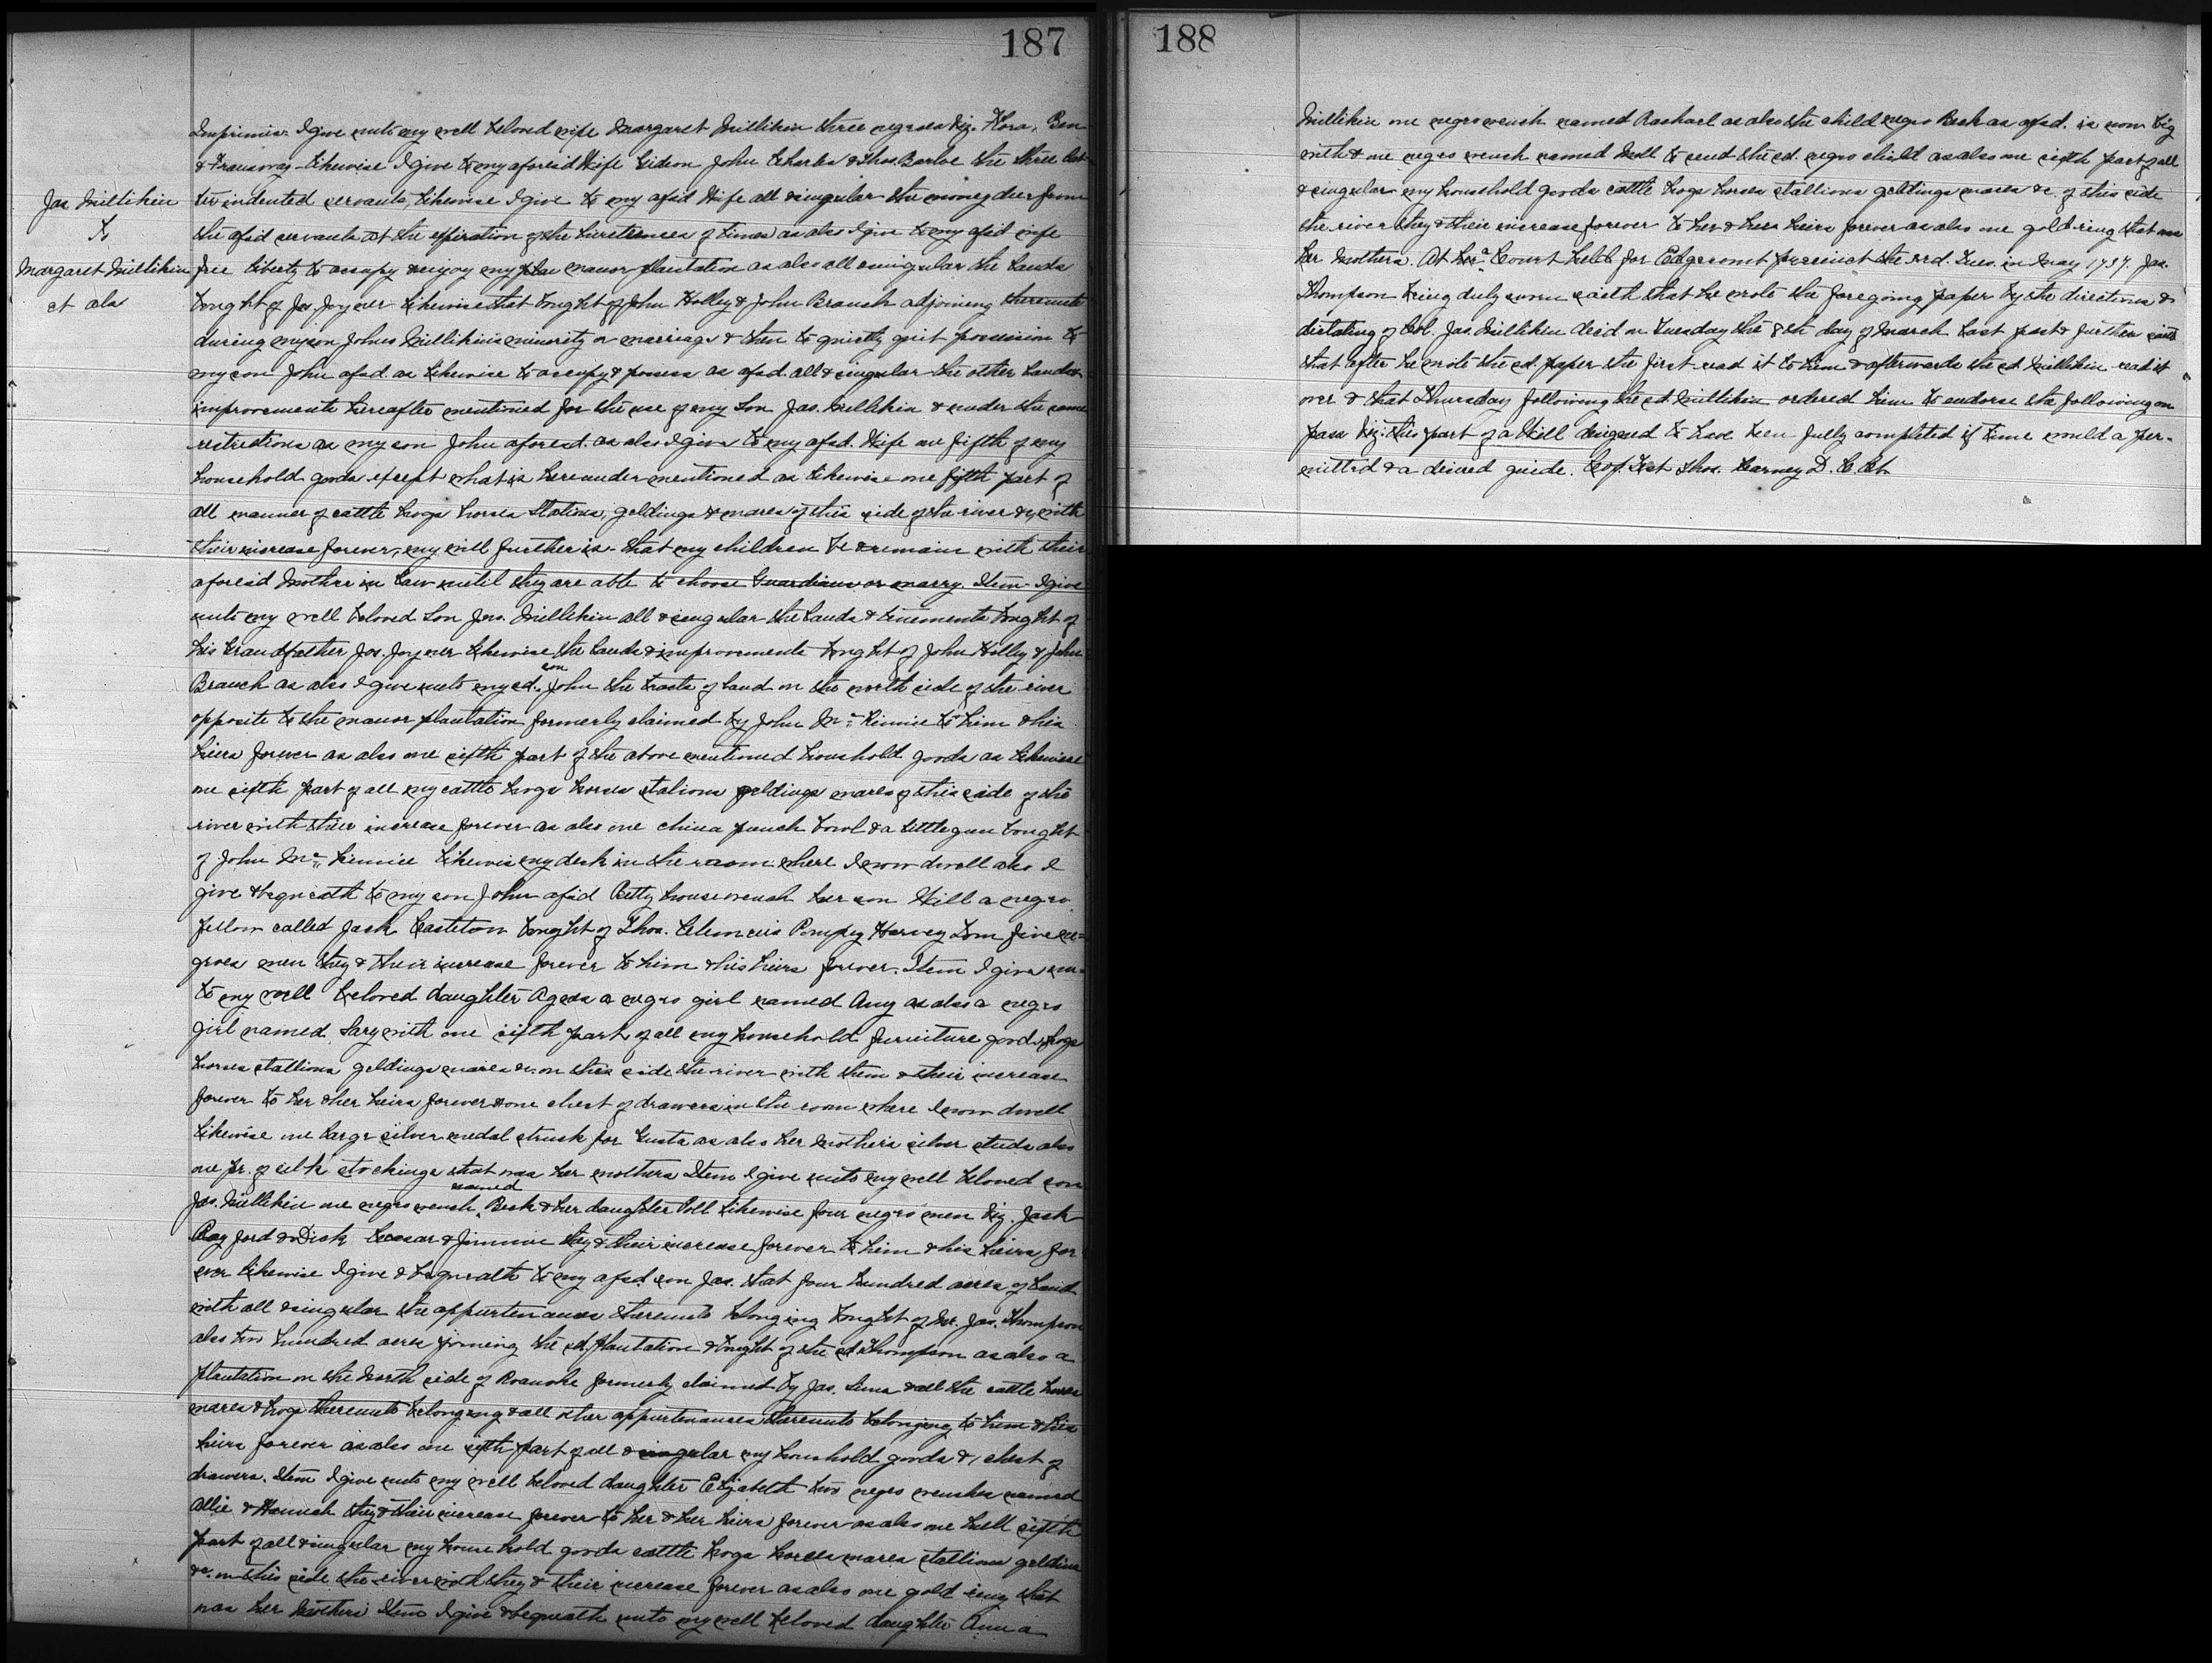 187
Jas Millikin
To
Margaret Millikin
et als
Imprimis I give unto my well beloved wife Margaret Millikin three negroes Viz. Flora, Ben
& likewise I give to my aforesaid Wife Gideon John Charles & Thos. Barloe the three
indented servants, likewise I give to my afsd Wife all & singular the money due from
the afsd servants at the expiration of the of times as also I give to my afsd wife
free liberty to occupy & enjoy my manor plantation as also all & singular the Lands
bought of Jos. Joyner likewise that bought of John Holley & John Branch adjoining thereunto
during my son Johns Millikin's minority or marriage & then to quietly quit possession to
my son John afsd. as likewise to occupy & possess as afsd. all & singular the other Lands &
improvements hereafter mentioned for the use of my Son Jas. Millikin & under the same
restrictions as my son John aforesd. as also I give to my afsd. Wife one fifth of my
household goods except what is hereunder mentioned as likewise one fifth part of
all manner of cattle hogs horses Stations, geldings & mares of this side of the river &c with
their increase forever, my will further is that my children be & remain with their
aforesaid Mother in Law until they are able to choose Guardians or marry. Item I give
unto my well beloved Son Jno. Millikin all & singular the Lands & tenements bought of
his Grandfather Jos. Joyner likewise the Lands & improvements bought of John Holley & John
Branch as also I give unto my sd. son John the tracts of land on the north side of the river
opposite to the manor plantation formerly claimed by John Mc Kinnie to him & his
heirs forever as also one fifth part of the above mentioned houshold goods as likewise
one fifth part of all my cattle hogs horses stalions geldings mares of this side of the
river with their increase forever as also one china punch bowl & a little gun bought
of John Mc Kinnie likewise my desk in the room where I now dwell also I
give & bequeath to my son John afsd Betty house wench her son Will a negro
fellow called Jack Casteton bought of Thos. Pompey Harvey Tom five ne-
groes men they & their increase forever to him & his heirs forever. Item I give un-
to my well beloved daughter a negro girl named Amy as also a negro
girl named Sary with one fifth part of all my household furniture goods hogs
horses stallions geldings mares &c. on this side the river with them & their increase
forever to her & her heirs forever & one chest of drawers in the room where I now dwell
likewise one large silver medal struck for as also her mother's silver studs also
one pr. of silk stockings that was her mothers Item I give unto my well beloved son
Jas. Millikin one negro wench named Besk & her daughter Doll likewise four negro men Viz. Jack
Rayford & Dick Ceasar & Jimmie they & their increase forever to him & his heirs for
ever likewise I give & bequeath to my afsd. son Jas. that four hundred acres of Land
with all & singular the appurtenances thereunto belonging bought of Mr. Jas. Thompson
also two hundred acres joining the sd. plantation & bought of the sd Thompson as also a
plantation on the North side of Roanoke formerly claimed by Jas. & all the cattle horses
mares & hogs thereunto belonging & all other appurtenances thereunto belonging to him & his
heirs forever as also one fifth part of all & singular my houshold goods & 1 chest of
drawers. Item I give unto my well beloved daughter Elizabeth two negro wenches named
Allie & Hannah they & their increase forever to her & her heirs forever as also one full fifth
part of all & singular my house hold goods cattle hogs horses mares stallions geldings
&c. on this side the river with they & their increase forever as also one gold ring that
was her Mothers Item I give & bequeath unto my well beloved daughter Anna
188
Millikin one negro wench named Rachael as also the child negro Besk as afsd. is now big
with & one negro wench named Moll to tend the sd. negro child as also one fifth part of all
& singular my household goods cattle hogs horses stallions geldings mares &c. of this side
the river they & their increase forever to her & her heirs forever as also one gold ring that was
her Mothers. At Court held for Edgecomb precinct the 3rd. Tues. in May 1737. Jas.
Thompson being duly sworn saith that he wrote the foregoing paper by the directions &
dictating of Col. Jas. Millikin decd on Tuesday the 8th day of March last past & further saith
that after he wrote the sd. paper he first read it to him & afterwards the sd Millikin read it
over & that Thursday following the sd. Millikin ordered him to endorse the following on
pass Viz: this part of a Will designed to have been fully completed if time would a per-
mitted & a desired guide. Cop Test Thos. Kearney D. C. Ct.